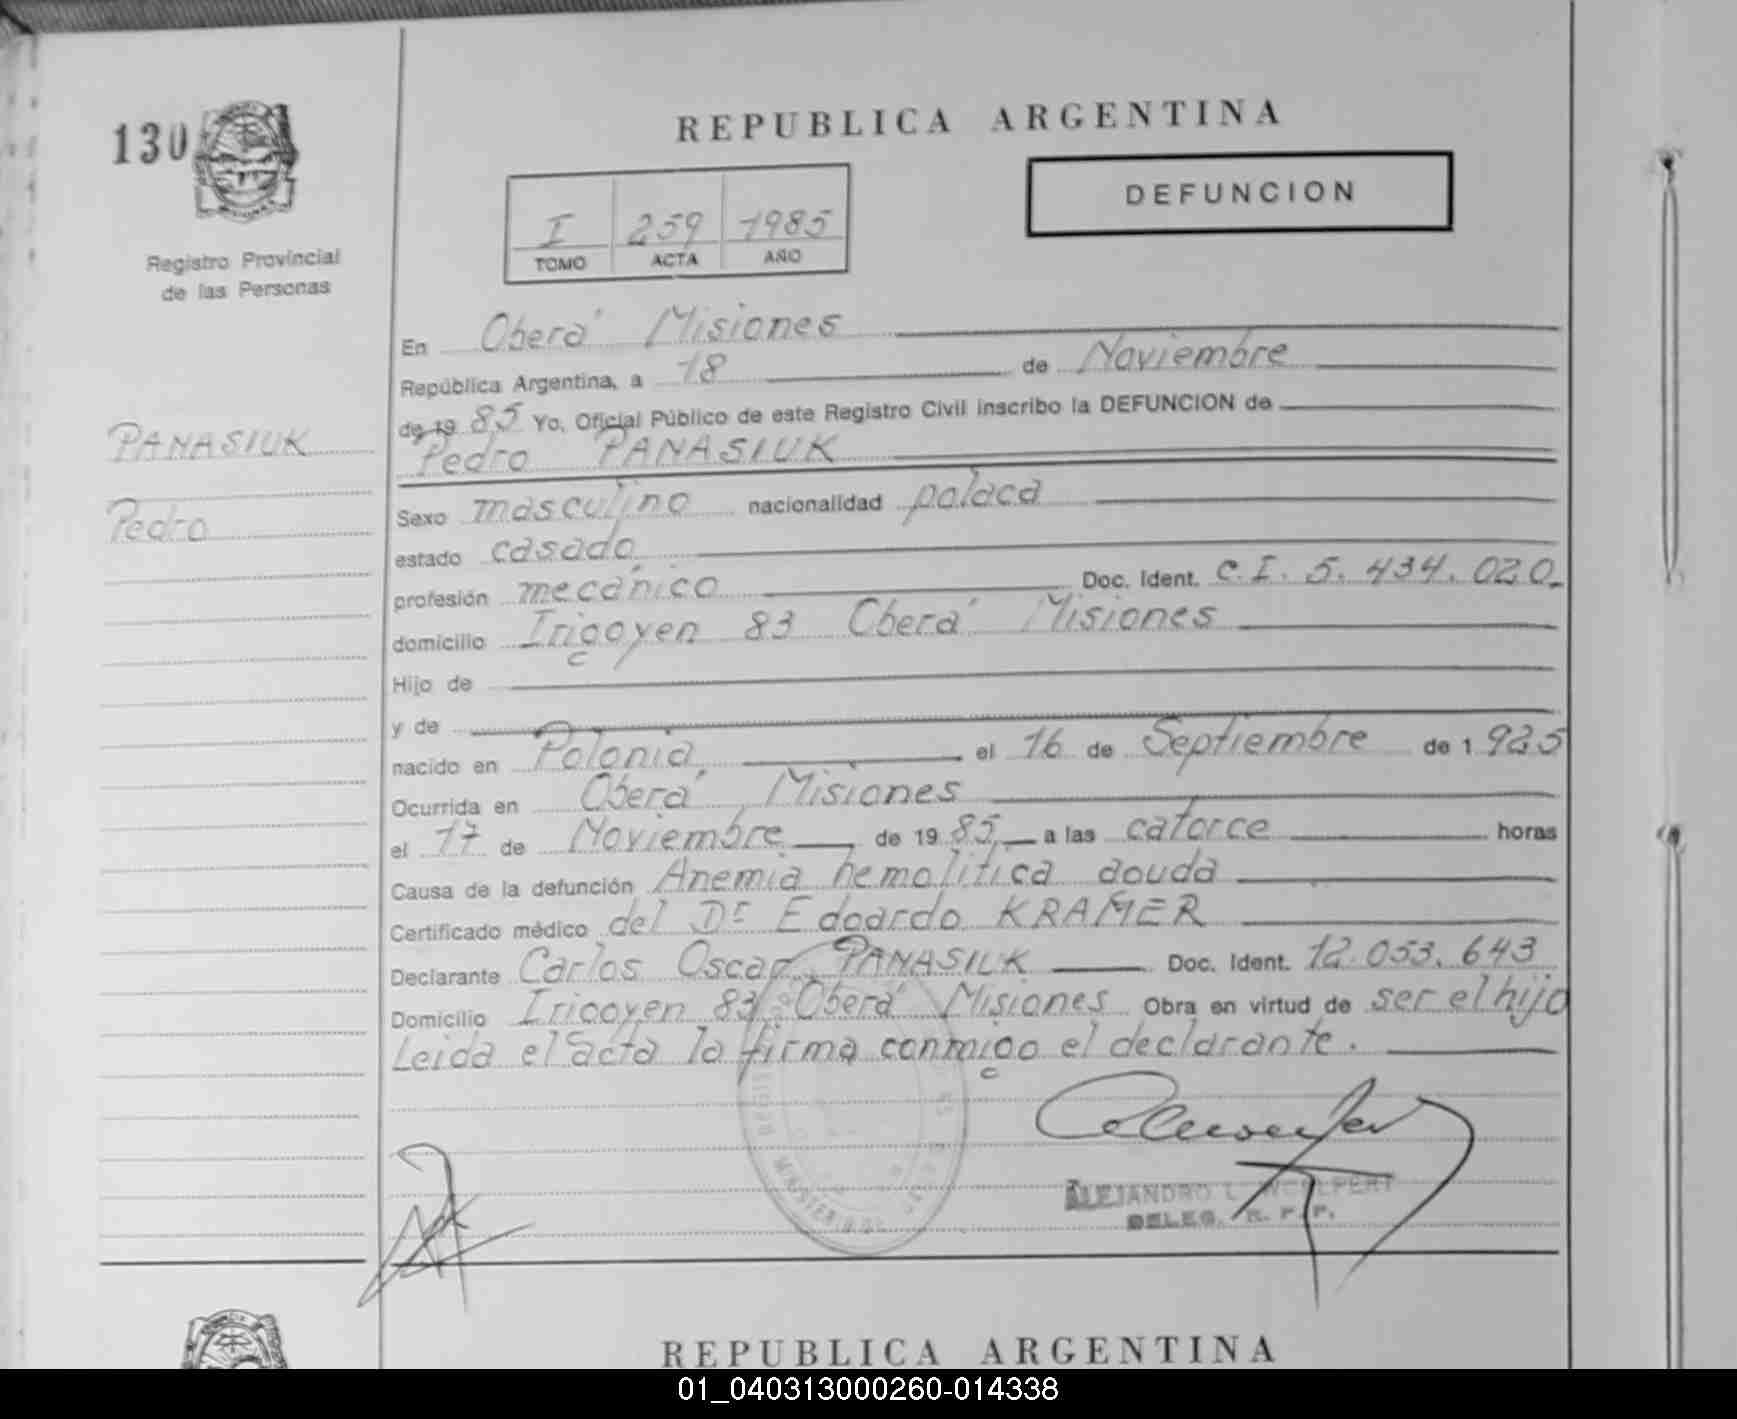 130
REPUBLICA ARGENTINA
DEFUNCION
I 259 1985
TOMO ACTA AÑO
Registro Provincial
de las Personas
PANASIUK
Pedro
En Oberá Misiones
República Argentina, a 18 de Noviembre
de 19 85 Yo, Oficial Público de este Registro Civil inscribo la DEFUNCION de
Pedro PANASIUK
Sexo masculino nacionalidad polaca
estado casado
profesión mecánico Doc. Ident. C.I. 5.434.020.
domicilio Irigoyen 83 Oberá Misiones
Hijo de
y de
nacido en Polonia el 16 de Septiembre de 1 925
Ocurrida en Oberá, Misiones
el 17 de Noviembre de 19 85 a las catorce horas
Causa de la defunción Anemia hemolítica aguda
Certificado médico del Dr Edgardo KRAMER
Declarante Carlos Oscar PANASIUK Doc. Ident. 12.053.643.
Domicilio Irigoyen 83 Oberá Misiones Obra en virtud de ser el hijo
Leida el acta la firma conmigo el declarante.
ALEJANDRO L. WOLLPERT
DELEG. R. P. P.
REPUBLICA ARGENTINA
01_040313000260-014338